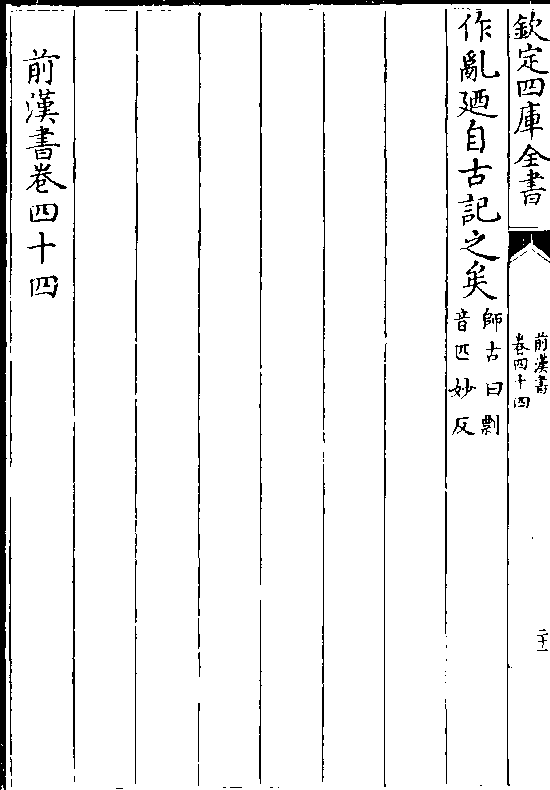 欽定四庫全書
前漢書
卷四十四
二十一
作亂廼自古記之矣
師古曰剽
音匹妙反
前漢書卷四十四